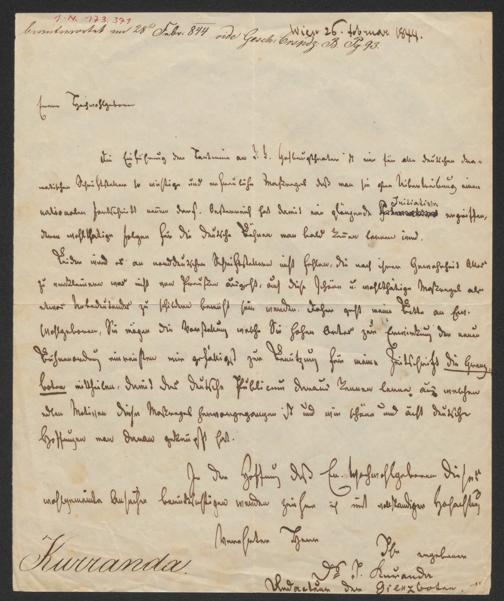 I. N. 173.371
beantwortet am 28t Febr. 844 vide Gesch. B. Pg 93.
Wien 26. Februar 1844.
Euer Hochwohlgeboren
Die Einführung der Tantieme am k. k. Hofburgtheater ist ein für alle deutschen dra-
matischen Schriftsteller so wichtige und erfreuliche Maßregel daß man sie ohne Uebertreibung einen
nationalen Fortschritt nennen darf. Oesterreich hat damit eine glänzende Initiative ergriffen,
deren wohlthätige Folgen für die deutsche Bühne man bald kennen lernen wird.
Leider wird es an norddeutschen Schriftstellern nicht fehlen, die nach ihrer Gewohnheit Alles
zu verkleinern was nicht von Preußen ausgeht, auch diese schöne u wohlthätige Maßregel als
etwas zu schildern bemüht sein werden. Daher geht meine Bitte an Ew.
Hochwohlgeboren, Sie mögen die Vorstellung welche Sie hohen Ortes zur Erwirkung der neuen
einreichten mir gefälligst zur Benützung für meine Zeitschrift die Grenz-
boten mittheilen, damit das deutsche Publicum daraus kennen lerne, aus welchen
edlen Motiven diese Maßregel hervorgegangen ist und wie schöne und ächt deutsche
Hoffnungen man daran geknüpft hat.
In der Hoffnung daß Ew. Hochwohlgeboren dieses
wohlgemeinte Ansuchen berücksichtigen werden zeichne ich mit vollständiger Hochachtung
Verehrter Herr
Ihr ergebener
Kuranda.
Dr J. Kuranda
Redacteur der Grenzboten.